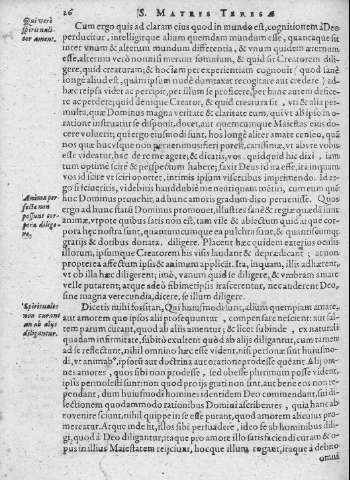 26 S. MATRIS TERESÆ
Qui verè spirituali-
ter ament.
Cum ergo quis ad claram eius quod in mundo est, cognitionem à Deo
perducitur, intelligitque alium quemdam mundum esse, quantaque sit
inter vnum & alterum mundum differentia, & vnum quidem æternum
esse, alterum verò non nisi merum somnium, & quid sit Creatorem dilige-
re, quid creaturam; & hoc iam per experientiam cognouit (quod sanè
longè aliud est, quàm ipsum nudè dumtaxat recogitare aut credere) ad-
hæc reipsa videt ac percipit, per illum se proficere, per hunc autem deficere
ac perdere; quid denique Creator, & quid creatura sit, vti & alia per-
multa, quæ Dominus magna veritate & claritate eum, qui vt ab ipso in o-
ratione instruatur se disponit, docet, aut quemcumque Maiestas eius do-
cere voluerit; qui ergo eiusmodi sunt, hos longè aliter amare censeo, quàm
nos quæ huc vsque non peruenimus
esse videatur, hæc de re me agere, & dicatis, vos quidquid hic dixi, iam
tum optimè scire & perspectum habere; faxit Deus id ita esse, ita inquam
vos id scire vt sciri oportet, intimis ipsum visceribus imprimendo. Id er-
go si sciueritis, videbitis haud dubiè me neutiquam mentiri, cum eum quem
huc Dominus prouehit, ad hunc amoris gradum dico peruenisse. Quos
ergo ad hunc statum Dominus promouet, illustres sanè & regiæ quædam sunt
Animæ per-
fectæ non
possunt cor-
pora dilige-
re.
animæ, vtpote quibus satis non est, tam vile & abiectum quid atque cor-
pora hęc nostra sunt, quantumcumque ea pulchra sint, & quantumcumque
gratijs & dotibus donata, diligere. Placent hæc quidem exterius oculis
illorum, ipsumque Creatorem his visis laudant & deprædicant; at non
propterea affectum ipsis & animum applicant. Ita, inquam, illis adhærent,
vt ob illa hæc diligerent; imò, vanum quid se diligere, & vmbram amare
velle putarent, atque adeò sibimetipsis irascerentur, nec auderent Deo,
sine magna verecundia, dicere, se illum diligere.
Spirituales
non curant
an ab alijs
diligantur.
Dicetis mihi fortasse, Qui huiusmodi sunt, alium quempiam amare,
aut amorem quo ipsos alij prosequuntur, compensare nesciunt: aut sal-
tem parum curant, quod ab aliis amentur; & licet subinde, ex naturali
quadam infirmitate, subitò exultent quòd ab alijs diligantur, cum tamen
ad se reflectunt, nihil omnino hæc esse vident, nisi personæ sint huiusmo-
di, vt animabus ipsorum aut doctrina aut oratione prodesse queant. Alij om-
nes amores, quos sibi non prodesse, sed obesse plurimum posse vident,
ipsis permolesti sunt: non quod pro ijs grati non sint, aut bene eos non re-
pendant, dum huiusmodi homines identidem Deo commendant, sui di-
lectionem quodammodo rationibus Domini ascribentes, quia hanc ab
rouenire sciunt, nihil quippe in se esse putant, quod amorem alicuius pro-
mereatur. Atque inde fit, illos sibi persuadere, ideo se ab hominibus dili-
gi, quod à Deo diligantur, itaque pro amore illo satisfaciendi curam & o-
pus in illius Maiestatem reijciunt, hocque illum rogant, itaque à debito
omni